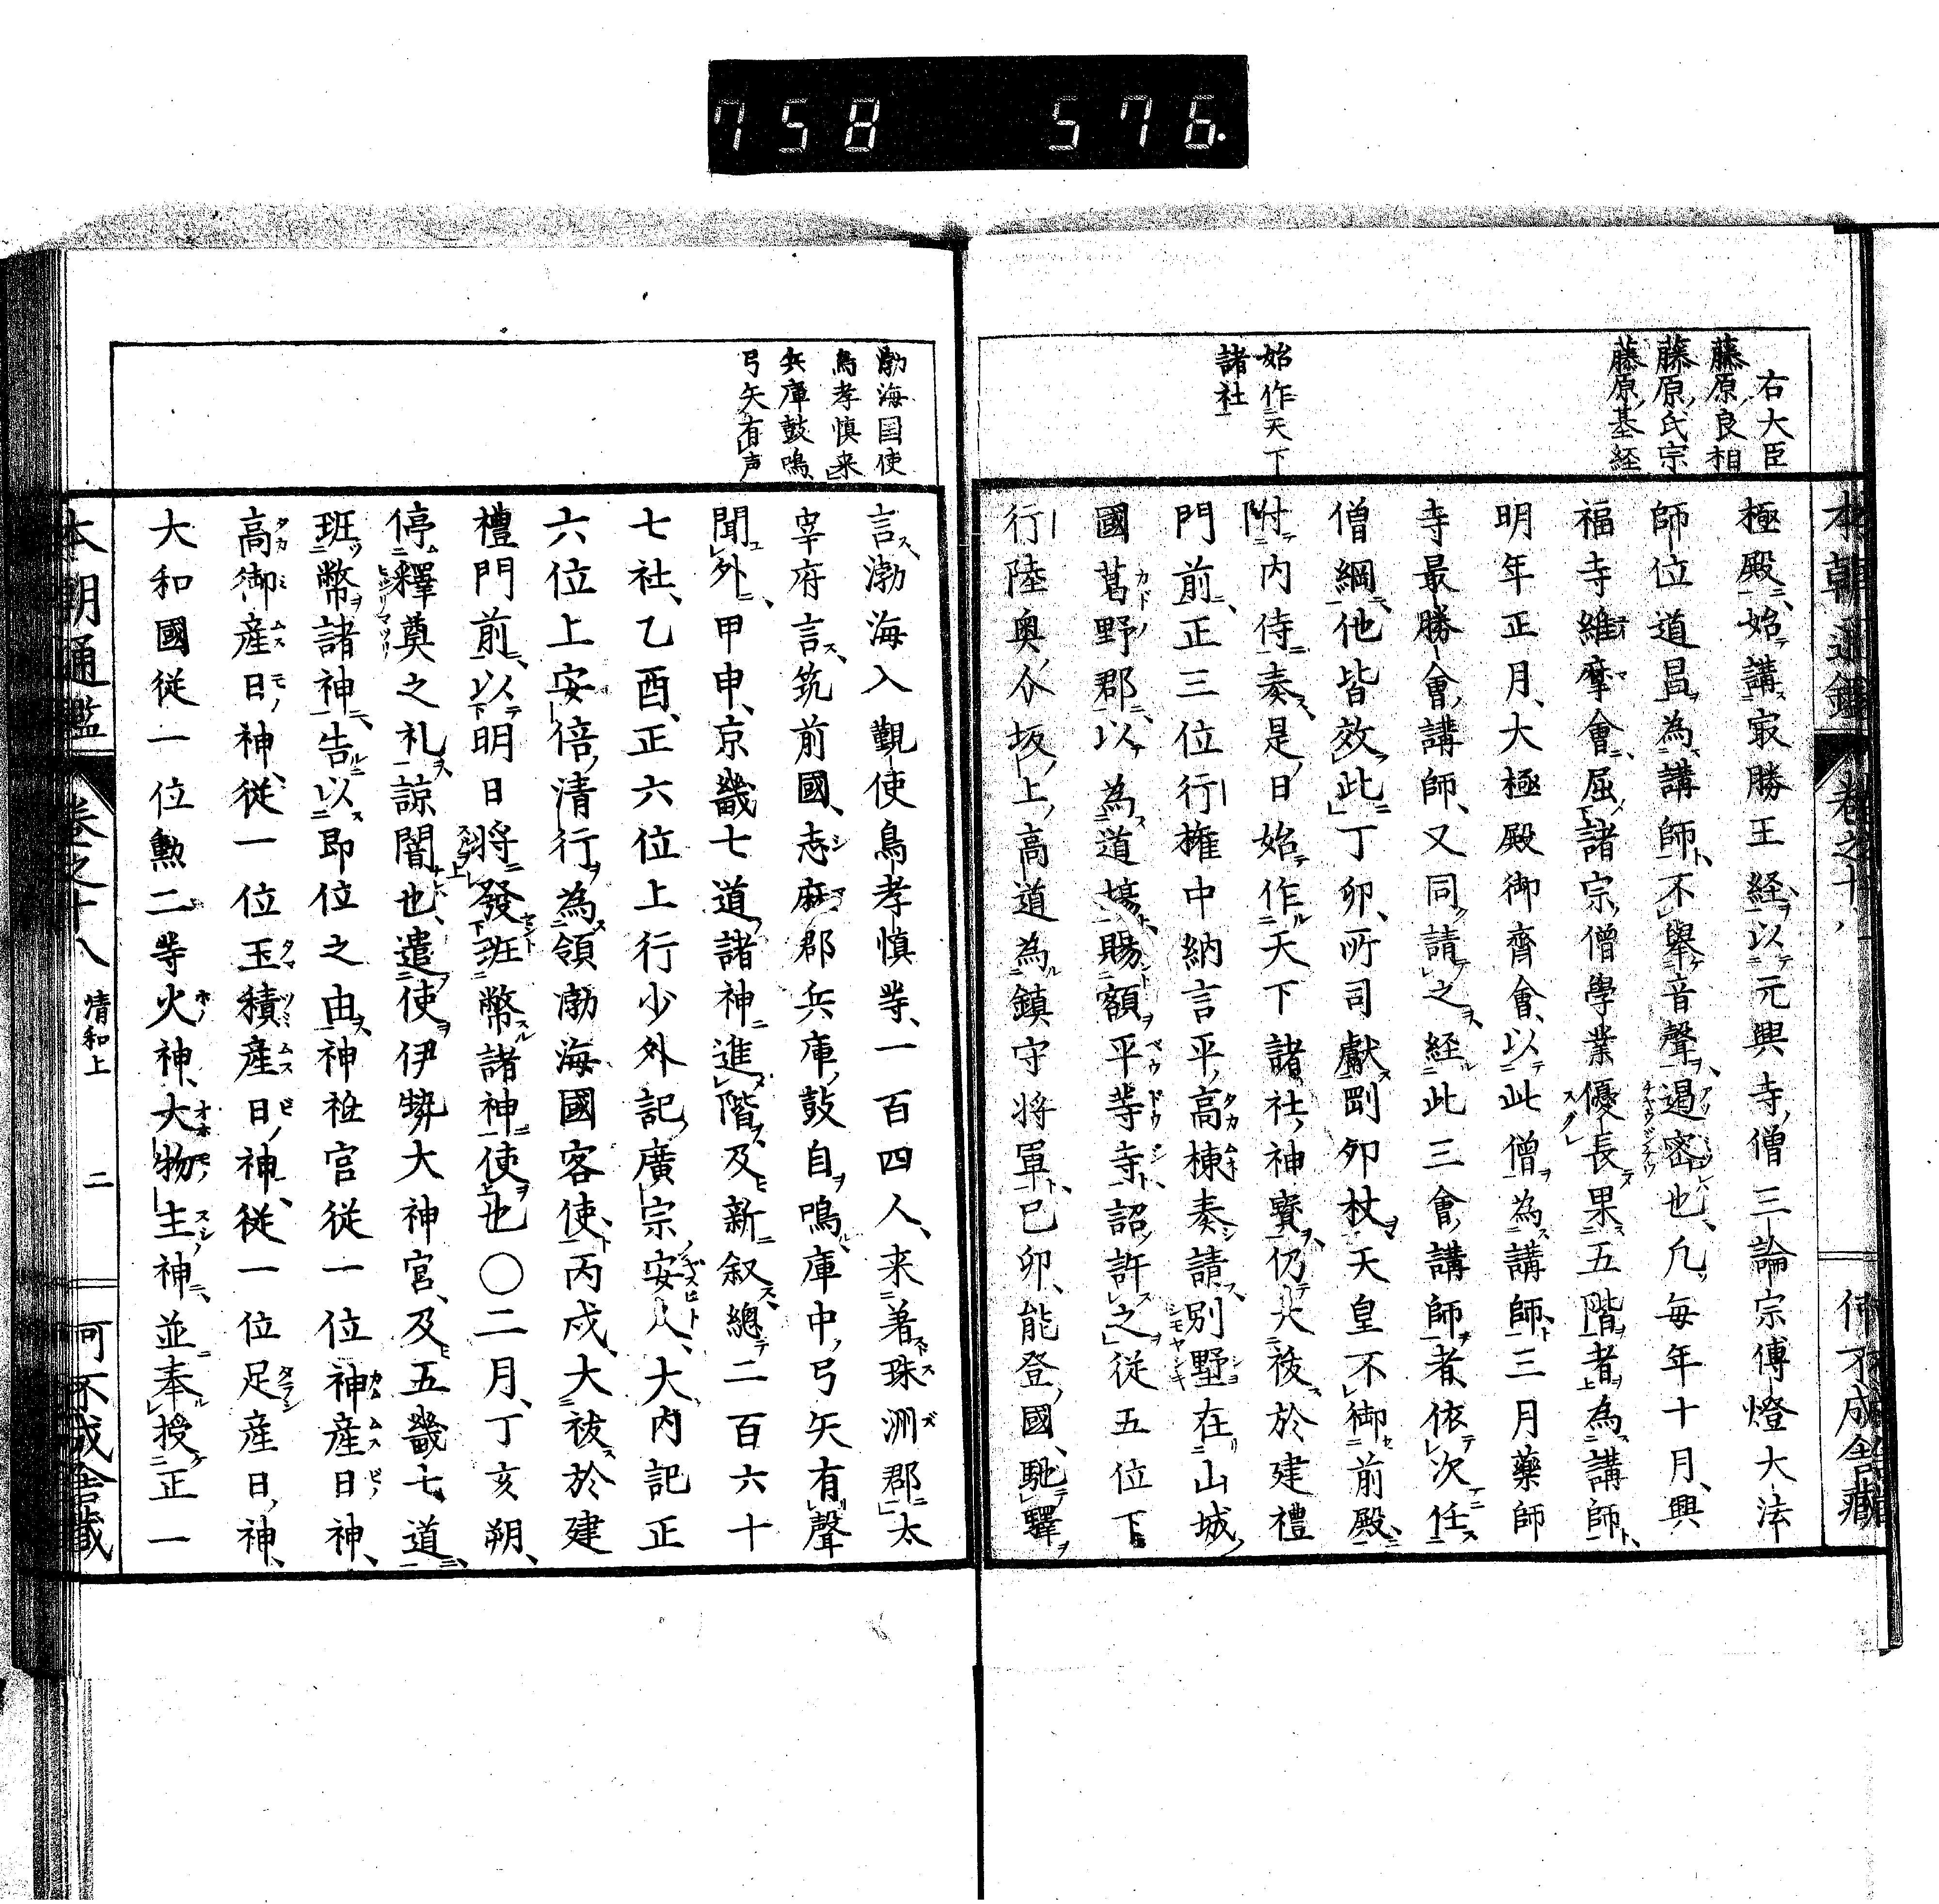 758 576.
右大臣
藤原良相
藤原氏宗
藤原基経
始作天下
諸社
極殿始講㝡勝王経以元興寺僧三論宗傳燈大法
師位道昌為講師不舉音聲遏密也凢毎年十月興
福寺維摩會屈諸宗僧學業優長果五階者為講師
明年正月大極殿御齊會以此僧為講師三月藥師
寺最勝會講師又同請之経此三會講師者依次任
僧綱他皆效此丁卯所司獻剛卯杖天皇不御前殿
付内侍奏是日始作天下諸社神寳仍大祓於建禮
門前正三位行権中納言平高棟奏請別墅在山城
國葛野郡以為道場賜額平等寺詔許之従五位下
行陸奥介坂上高道為鎮守将軍己卯能登國馳驛
渤海国使
烏孝慎来
兵庫鼓鳴
弓矢有声
言渤海入覲使烏孝慎等一百四人来著珠洲郡太
宰府言筑前國志麻郡兵庫鼓自鳴庫中弓矢有聲
聞外甲申京畿七道諸神進階及新叙總二百六十
七社乙酉正六位上行少外記廣宗安人大内記正
六位上安倍清行為領渤海國客使丙戍大祓於建
禮門前以明日将發班幣諸神使也〇二月丁亥朔
停釋奠之礼諒闇也遣使伊勢大神宮及五畿七道
班幣諸神告以即位之由神祇官従一位神産日神
高御産日神従一位玉積産日神従一位足産日神
大和國従一位勲二等火神大物主神並奉授正一
本朝通鑑 卷之十八 清和上 二 何不成舍藏